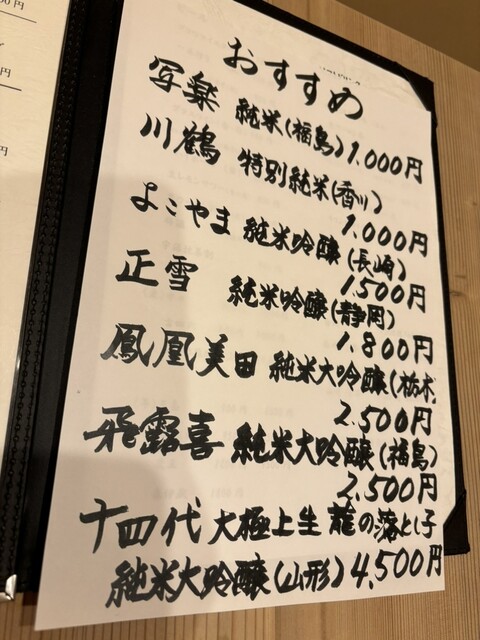 おすすめ
写楽 純米(福島)1.000円
川鶴 特別純米(香川)
1.000円
よこやま 純米吟醸(長崎)
1.500円
正雪 純米吟醸(静岡)
1.800円
鳳凰美田 純米大吟醸(栃木
2.500円
飛露喜 純米大吟醸(福島)
2.500円
十四代 大極上生 龍の落とし子
純米大吟醸(山形)4.500円
円
円
円